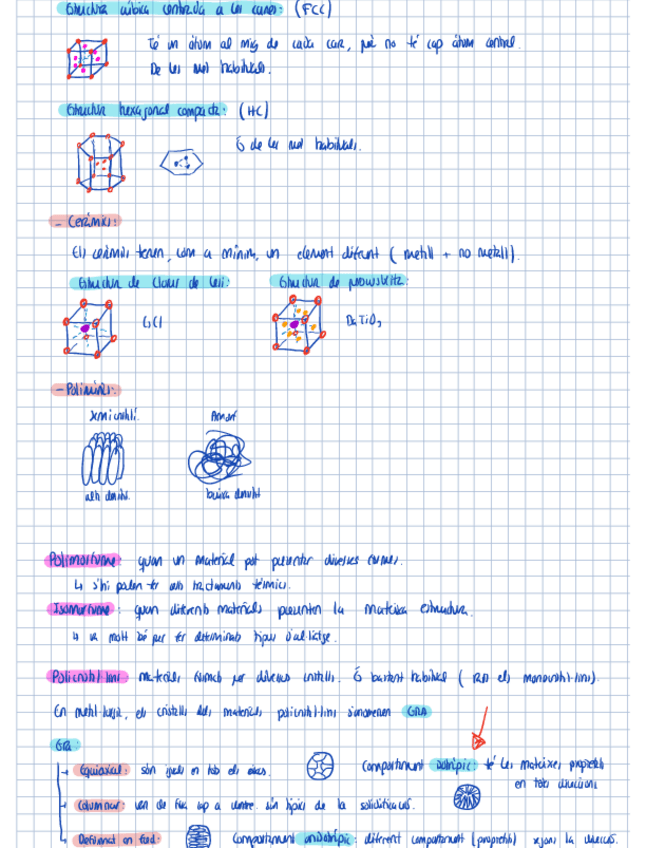 Estructura cúbica centrada a les cares: (FCC)
Té un àtom al mig de cada cara, però no té cap àtom central
De les més habituals.
Estructura hexagonal compacta: (HC)
És de les més habituals.
- Ceràmics:
Els ceràmics tenen, com a mínim, un element diferent (metall + no metall).
Estructura de Clorur de Cesi: Estructura de perovskita:
CsCl BaTiO3
- Polímers:
semicristal·lí. Amorf
alta densitat. baixa densitat
Polimorfisme: quan un material pot presentar diverses formes.
↳ s'hi poden fer amb tractaments tèrmics.
Isomorfisme: quan diferents materials presenten la mateixa estructura.
↳ va molt bé per fer determinats tipus d'aliatge.
Policristal·lins materials formats per diversos cristalls. És bastant habitual ( els monocristal·lins).
En metal·lúrgia, els cristalls dels materials policristal·lins s'anomenen GRA
GRA:
Equiaxial: són iguals en tots els eixos. Comportament isotròpic: té les mateixes propietats
en totes direccions
Columnar: van de fora cap a centre. són típics de la solidificació.
Deformat en fred: Comportament anisotròpic: diferent comportament (propietats) segons la direcció.